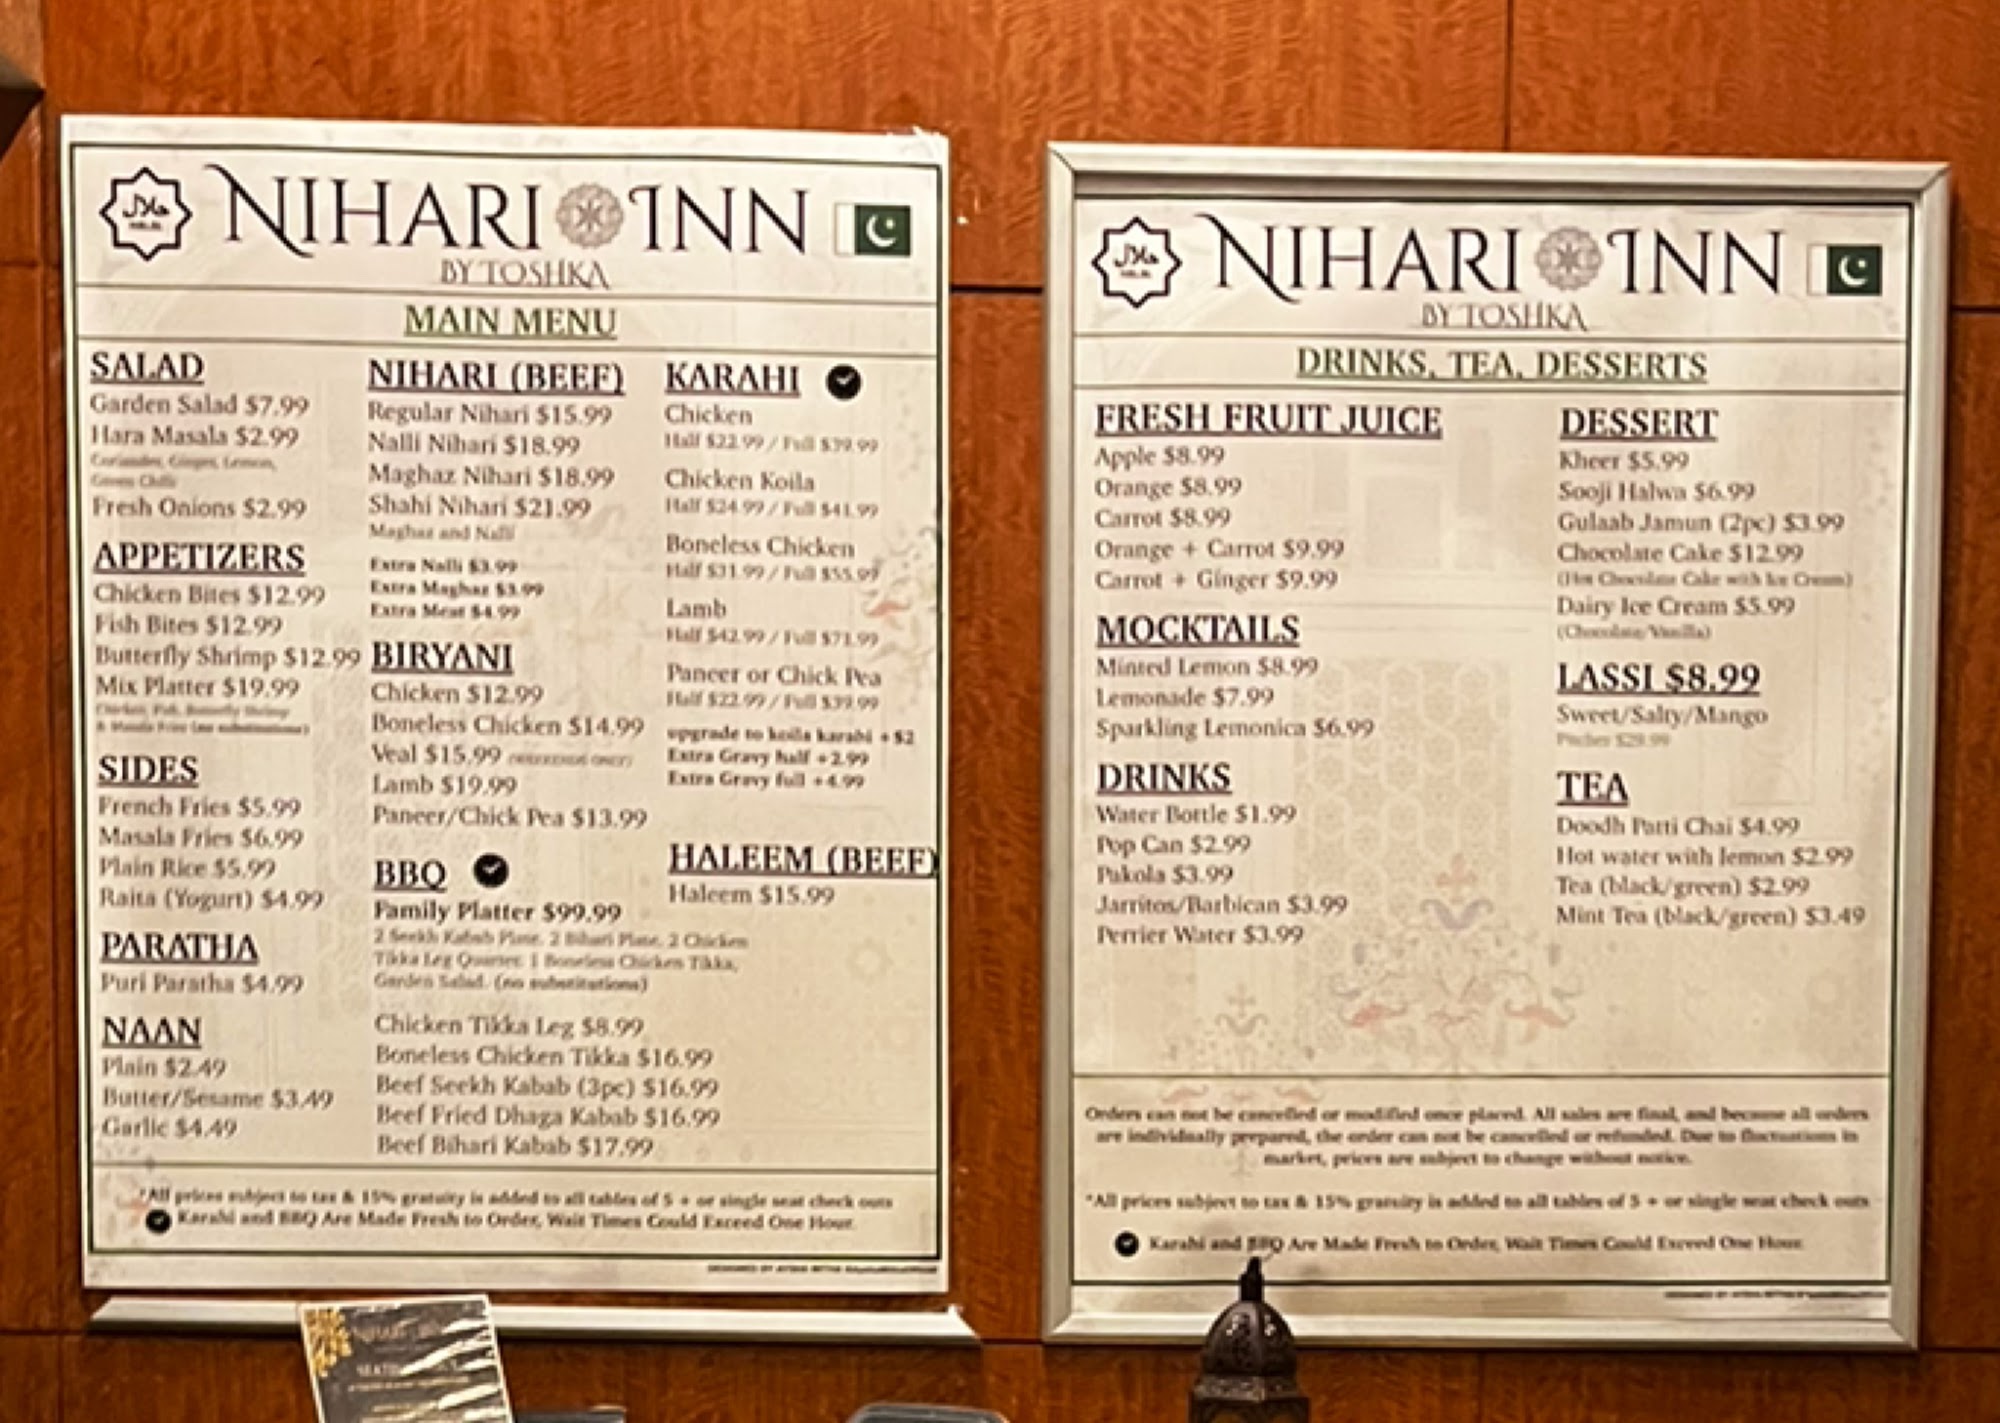 حلال
HALAL
NIHARI INN
BY TOSHKA
MAIN MENU
SALAD
Garden Salad $7.99
Hara Masala $2.99
Coriander, Ginger, Lemon,
Green Chilli
Fresh Onions $2.99
APPETIZERS
Chicken Bites $12.99
Fish Bites $12.99
Butterfly Shrimp $12.99
Mix Platter $19.99
Chicken, Fish, Butterfly Shrimp
& Masala Fries (no substitutions)
SIDES
French Fries $5.99
Masala Fries $6.99
Plain Rice $5.99
Raita (Yogurt) $4.99
PARATHA
Puri Paratha $4.99
NAAN
Plain $2.49
Butter/Sesame $3.49
Garlic $4.49
NIHARI (BEEF)
Regular Nihari $15.99
Nalli Nihari $18.99
Maghaz Nihari $18.99
Shahi Nihari $21.99
Maghaz and Nalli
Extra Nalli $3.99
Extra Maghaz $3.99
Extra Meat $4.99
BIRYANI
Chicken $12.99
Boneless Chicken $14.99
Veal $15.99 (WEEKENDS ONLY)
Lamb $19.99
Paneer/Chick Pea $13.99
BBQ
Family Platter $99.99
2 Seekh Kabab Plate, 2 Bihari Plate, 2 Chicken
Tikka Leg Quarter, 1 Boneless Chicken Tikka,
Garden Salad. (no substitutions)
Chicken Tikka Leg $8.99
Boneless Chicken Tikka $16.99
Beef Seekh Kabab (3pc) $16.99
Beef Fried Dhaga Kabab $16.99
Beef Bihari Kabab $17.99
KARAHI
Chicken
Half $22.99 / Full $39.99
Chicken Koila
Half $24.99 / Full $41.99
Boneless Chicken
Half $31.99 / Full $55.99
Lamb
Half $42.99 / Full $71.99
Paneer or Chick Pea
Half $22.99 / Full $39.99
upgrade to koila karahi + $2
Extra Gravy half +2.99
Extra Gravy full +4.99
HALEEM (BEEF)
Haleem $15.99
*All prices subject to tax & 15% gratuity is added to all tables of 5 + or single seat check outs
Karahi and BBQ Are Made Fresh to Order, Wait Times Could Exceed One Hour.
DESIGNED BY
حلال
HALAL
NIHARI INN
BY TOSHKA
DRINKS, TEA, DESSERTS
FRESH FRUIT JUICE
Apple $8.99
Orange $8.99
Carrot $8.99
Orange + Carrot $9.99
Carrot + Ginger $9.99
MOCKTAILS
Minted Lemon $8.99
Lemonade $7.99
Sparkling Lemonica $6.99
DRINKS
Water Bottle $1.99
Pop Can $2.99
Pakola $3.99
Jarritos/Barbican $3.99
Perrier Water $3.99
DESSERT
Kheer $5.99
Sooji Halwa $6.99
Gulaab Jamun (2pc) $3.99
Chocolate Cake $12.99
(Hot Chocolate Cake with Ice Cream)
Dairy Ice Cream $5.99
(Chocolate/Vanilla)
LASSI $8.99
Sweet/Salty/Mango
Pitcher $29.99
TEA
Doodh Patti Chai $4.99
Hot water with lemon $2.99
Tea (black/green) $2.99
Mint Tea (black/green) $3.49
Orders can not be cancelled or modified once placed. All sales are final, and because all orders
are individually prepared, the order can not be cancelled or refunded. Due to fluctuations in
market, prices are subject to change without notice.
*All prices subject to tax & 15% gratuity is added to all tables of 5 + or single seat check outs
Karahi and BBQ Are Made Fresh to Order, Wait Times Could Exceed One Hour.
DESIGNED BY
NIHARI